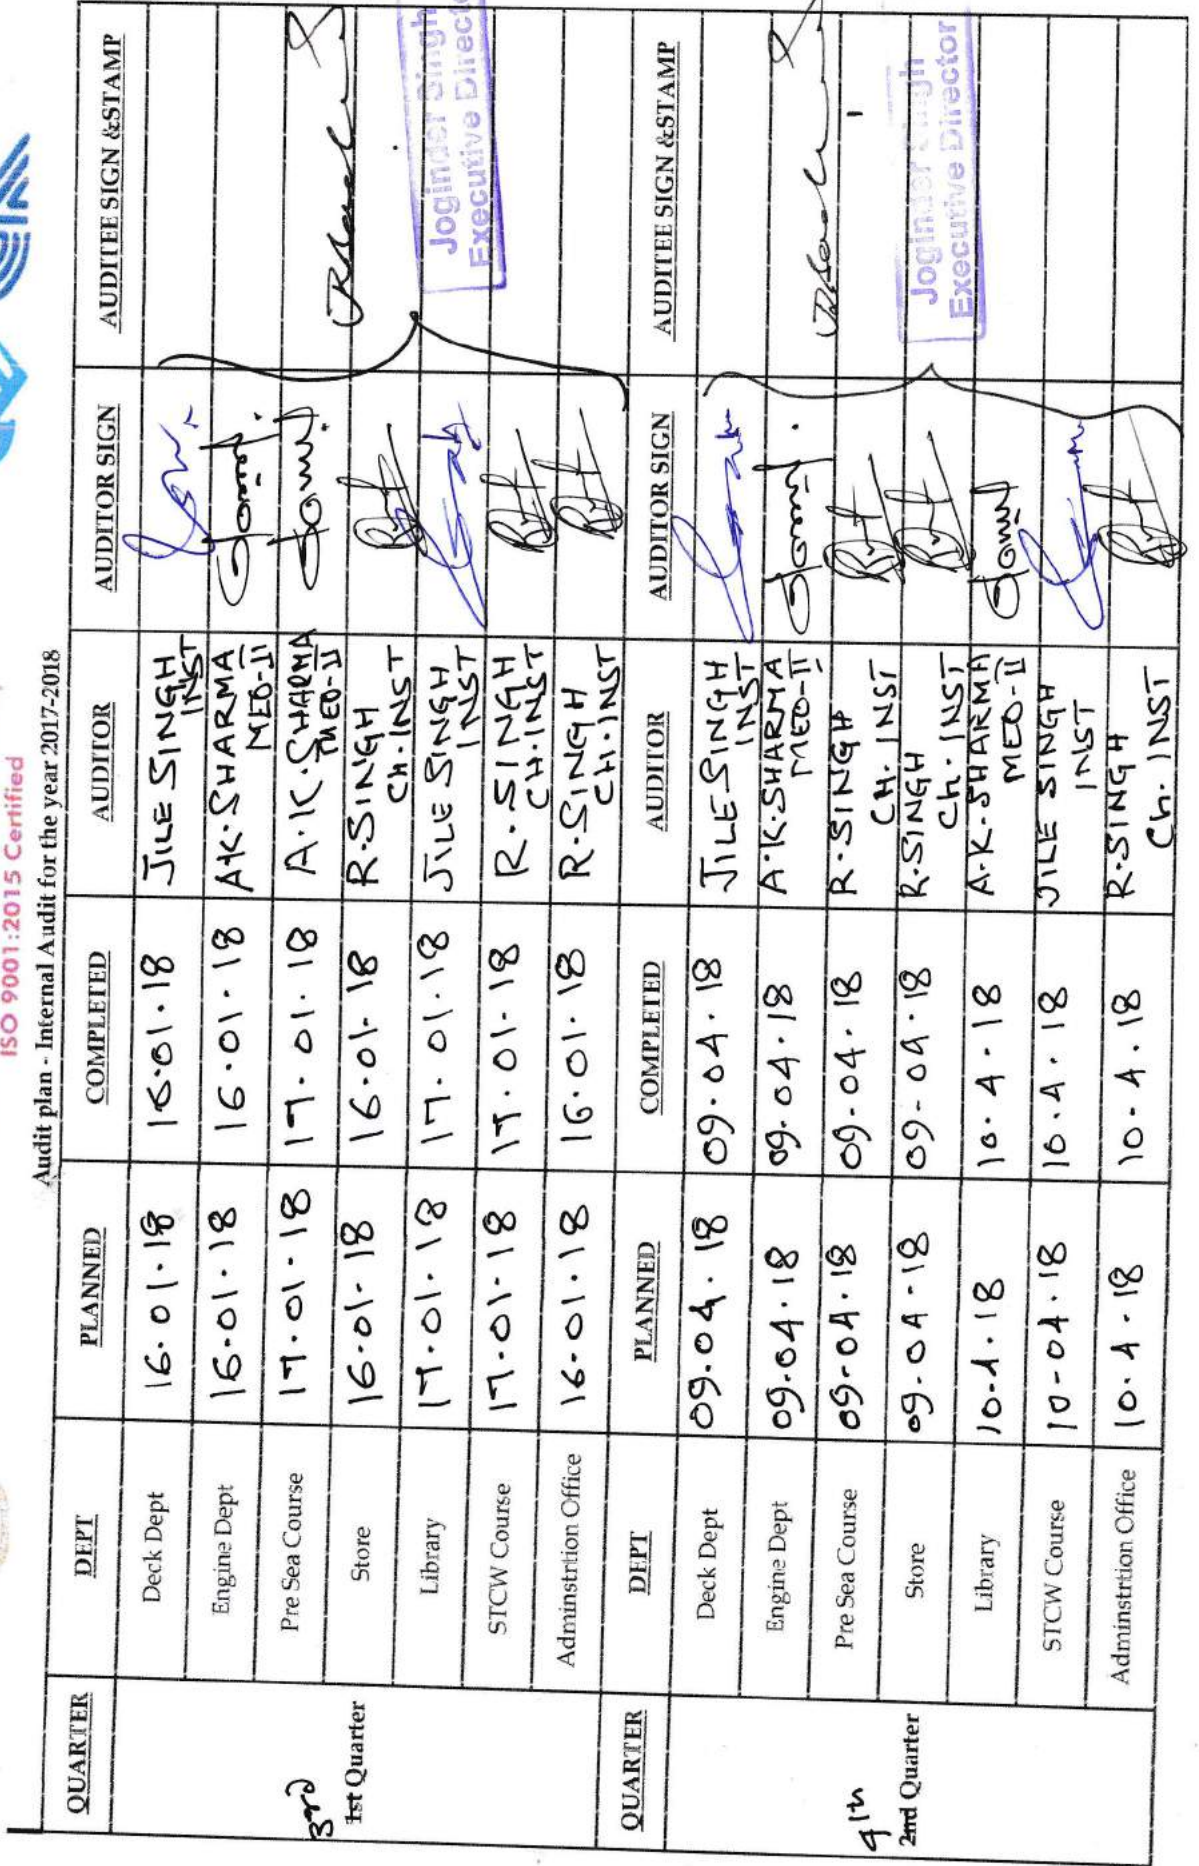 ISO 9001:2015 Certified
Audit plan - Internal Audit for the year 2017-2018
QUARTER DEPT PLANNED COMPLETED AUDITOR AUDITOR SIGN AUDITEE SIGN &STAMP
3rd
1st Quarter
Deck Dept 16.01.18 16.01.18 JILE SINGH
INST
Engine Dept 16.01.18 16.01.18 A.K.SHARMA
MEO-II
Pre Sea Course 17.01.18 17.01.18 A.K.SHARMA
MEO-II
Store 16.01.18 16.01.18 R.SINGH
CH.INST
Library 17.01.18 17.01.18 JILE SINGH
INST
STCW Course 17.01.18 17.01.18 R.SINGH
CH.INST
Adminstrtion Office 16.01.18 16.01.18 R.SINGH
CH.INST
Joginder Singh
Executive Direct
QUARTER DEPT PLANNED COMPLETED AUDITOR AUDITOR SIGN AUDITEE SIGN &STAMP
4th
2nd Quarter
Deck Dept 09.04.18 09.04.18 JILE SINGH
INST
Engine Dept 09.04.18 09.04.18 A.K.SHARMA
MEO-II
Pre Sea Course 09.04.18 09.04.18 R.SINGH
CH.INST
Store 09.04.18 09.04.18 R.SINGH
Ch.INST
Library 10.4.18 10.4.18 A.K.SHARMA
MEO-II
STCW Course 10-04.18 10.4.18 JILE SINGH
INST
Adminstrtion Office 10.4.18 10.4.18 R.SINGH
Ch.INST
Joginder Singh
Executive Director